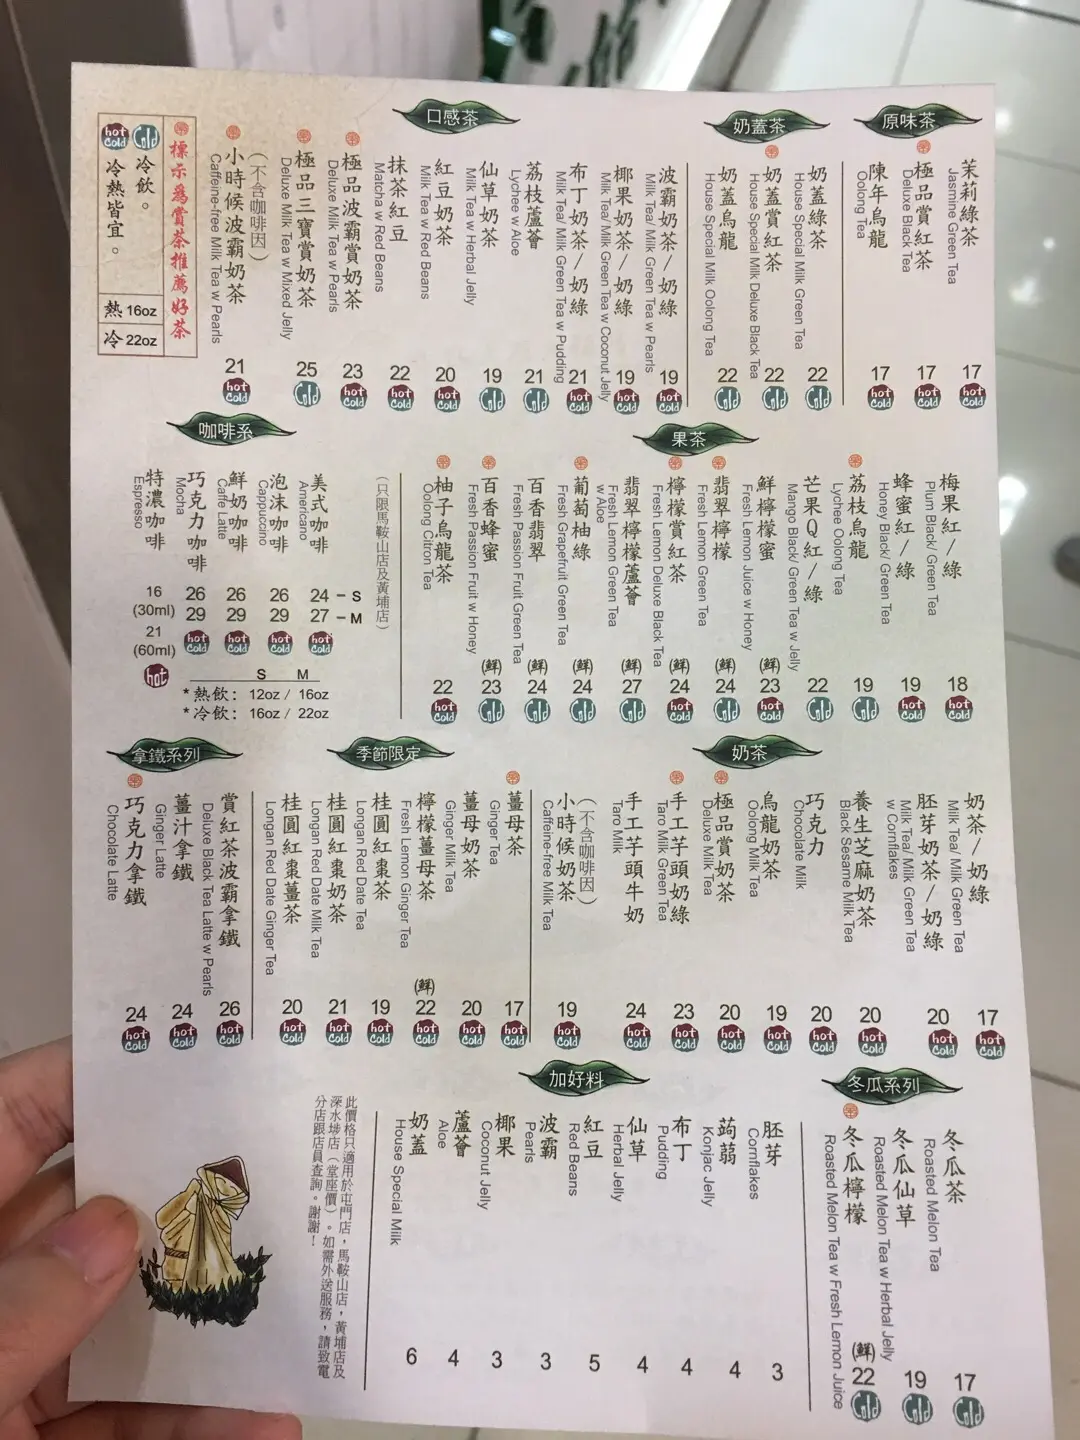 原味茶
茉莉綠茶
Jasmine Green Tea
17
hot cold
極品賞紅茶
Deluxe Black Tea
17
hot cold
陳年烏龍
Oolong Tea
17
hot cold
奶蓋茶
奶蓋綠茶
House Special Milk Green Tea
22
Cold
奶蓋賞紅茶
House Special Milk Deluxe Black Tea
22
Cold
奶蓋烏龍
House Special Milk Oolong Tea
22
Cold
口感茶
波霸奶茶/奶綠
Milk Tea/ Milk Green Tea w Pearls
19
hot cold
椰果奶茶/奶綠
Milk Tea/ Milk Green Tea w Coconut Jelly
19
hot cold
布丁奶茶/奶綠
Milk Tea/ Milk Green Tea w Pudding
21
hot cold
荔枝蘆薈
Lychee w Aloe
21
Cold
仙草奶茶
Milk Tea w Herbal Jelly
19
Cold
紅豆奶茶
Milk Tea w Red Beans
20
hot cold
抹茶紅豆
Matcha w Red Beans
22
hot cold
極品波霸賞奶茶
Deluxe Milk Tea w Pearls
23
hot cold
極品三寶賞奶茶
Deluxe Milk Tea w Mixed Jelly
25
Cold
小時候波霸奶茶
(不含咖啡因)
Caffeine-free Milk Tea w Pearls
21
hot cold
標示為賞茶推薦好茶
Cold 冷飲。
hot cold 冷熱皆宜。
熱 16oz
冷 22oz
果茶
梅果紅/綠
Plum Black/ Green Tea
18
hot cold
蜂蜜紅/綠
Honey Black/ Green Tea
19
hot cold
荔枝烏龍
Lychee Oolong Tea
19
Cold
芒果Q紅/綠
Mango Black/ Green Tea w Jelly
22
Cold
鮮檸檬蜜
Fresh Lemon Juice w Honey
(鮮)
23
hot cold
翡翠檸檬
Fresh Lemon Green Tea
(鮮)
24
hot cold
檸檬賞紅茶
Fresh Lemon Deluxe Black Tea
(鮮)
24
hot cold
翡翠檸檬蘆薈
Fresh Lemon Green Tea
w Aloe
(鮮)
27
Cold
葡萄柚綠
Fresh Grapefruit Green Tea
(鮮)
24
Cold
百香翡翠
Fresh Passion Fruit Green Tea
(鮮)
24
Cold
百香蜂蜜
Fresh Passion Fruit w Honey
(鮮)
23
Cold
柚子烏龍茶
Oolong Citron Tea
22
hot cold
咖啡系
(只限馬鞍山店及黃埔店)
美式咖啡
Americano
24 – S
27 – M
hot cold
泡沫咖啡
Cappuccino
26
29
hot cold
鮮奶咖啡
Caffe Latte
26
29
hot cold
巧克力咖啡
Mocha
26
29
hot cold
特濃咖啡
Espresso
16
(30ml)
21
(60ml)
hot
S M
*熱飲: 12oz / 16oz
*冷飲: 16oz / 22oz
奶茶
奶茶/奶綠
Milk Tea/ Milk Green Tea
17
hot cold
胚芽奶茶/奶綠
Milk Tea/ Milk Green Tea
w Cornflakes
20
hot cold
養生芝麻奶茶
Black Sesame Milk Tea
20
hot cold
巧克力
Chocolate Milk
20
hot cold
烏龍奶茶
Oolong Milk Tea
19
hot cold
極品賞奶茶
Deluxe Milk Tea
20
hot cold
手工芋頭奶綠
Taro Milk Green Tea
23
hot cold
手工芋頭牛奶
Taro Milk
24
hot cold
小時候奶茶
(不含咖啡因)
Caffeine-free Milk Tea
19
hot cold
季節限定
薑母茶
Ginger Tea
17
hot cold
薑母奶茶
Ginger Milk Tea
20
hot cold
檸檬薑母茶
Fresh Lemon Ginger Tea
(鮮)
22
hot cold
桂圓紅棗茶
Longan Red Date Tea
19
hot cold
桂圓紅棗奶茶
Longan Red Date Milk Tea
21
hot cold
桂圓紅棗薑茶
Longan Red Date Ginger Tea
20
hot cold
拿鐵系列
賞紅茶波霸拿鐵
Deluxe Black Tea Latte w Pearls
26
hot cold
薑汁拿鐵
Ginger Latte
24
hot cold
巧克力拿鐵
Chocolate Latte
24
hot cold
冬瓜系列
冬瓜茶
Roasted Melon Tea
17
Cold
冬瓜仙草
Roasted Melon Tea w Herbal Jelly
19
Cold
冬瓜檸檬
Roasted Melon Tea w Fresh Lemon Juice
(鮮)
22
Cold
加好料
胚芽
Cornflakes
3
蒟蒻
Konjac Jelly
4
布丁
Pudding
4
仙草
Herbal Jelly
4
紅豆
Red Beans
5
波霸
Pearls
3
椰果
Coconut Jelly
3
蘆薈
Aloe
4
奶蓋
House Special Milk
6
此價格只適用於屯門店,馬鞍山店,黃埔店及
深水埗店(堂座價)。如需外送服務,請致電
分店跟店員查詢。謝謝!